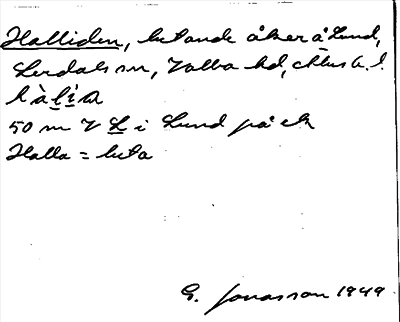 Halliden, lutande åker å Lund,
Lerdals sn, Valbo hd, Älvsb. l.
hàlịa
50 m V L i Lund på ek
Halla = luta
G. Jonasson 1949